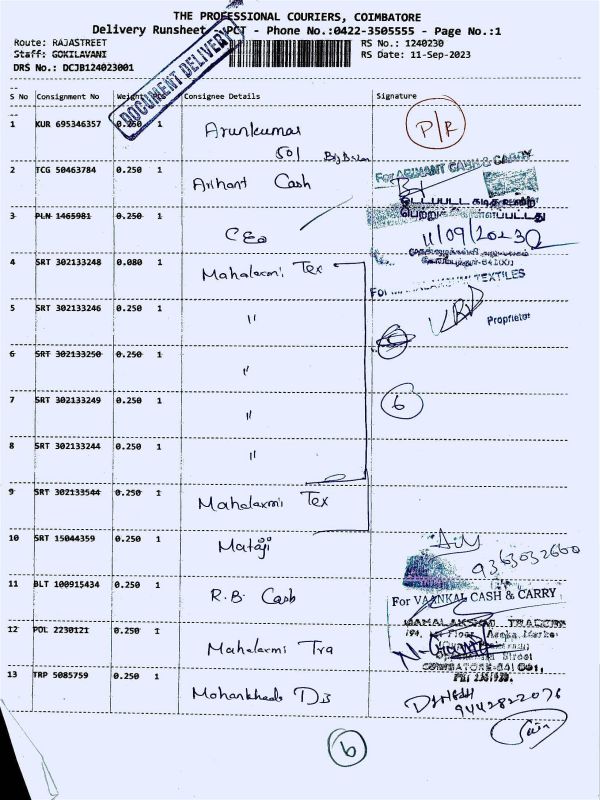 THE PROFESSIONAL COURIERS, COIMBATORE
Delivery Runsheet - Phone No.:0422-3505555 - Page No.:1
Route: RAJASTREET RS No.: 1240230
Staff: GOKILAVANI RS Date: 11-Sep-2023
DRS No.: DCJB124023001
DOCUMENT DELIVERY
S No Consignment No Weight Pcs Consignee Details Signature
1 KUR 695346357 0.250 1 Arunkumar P/R
501
2 TCG 50463784 0.250 1 Arihant Cash For ARIHANT CASH & CARRY
3 PLN 1465981 0.250 1 CEO
11/09/2023
4 SRT 302133248 0.080 1 Mahalaxmi Tex
TEXTILES
5 SRT 302133246 0.250 1 "
Proprietor
6 SRT 302133250 0.250 1 "
7 SRT 302133249 0.250 1 " 6
8 SRT 302133244 0.250 1 "
9 SRT 302133544 0.250 1 Mahalaxmi Tex
10 SRT 15044359 0.250 1 Mataji
9363032660
11 BLT 100915434 0.250 1 R.B. Cash
For VAANKAL CASH & CARRY
12 POL 2230121 0.250 1 Mahalaxmi Tra
13 TRP 5085759 0.250 1
9442822076
6